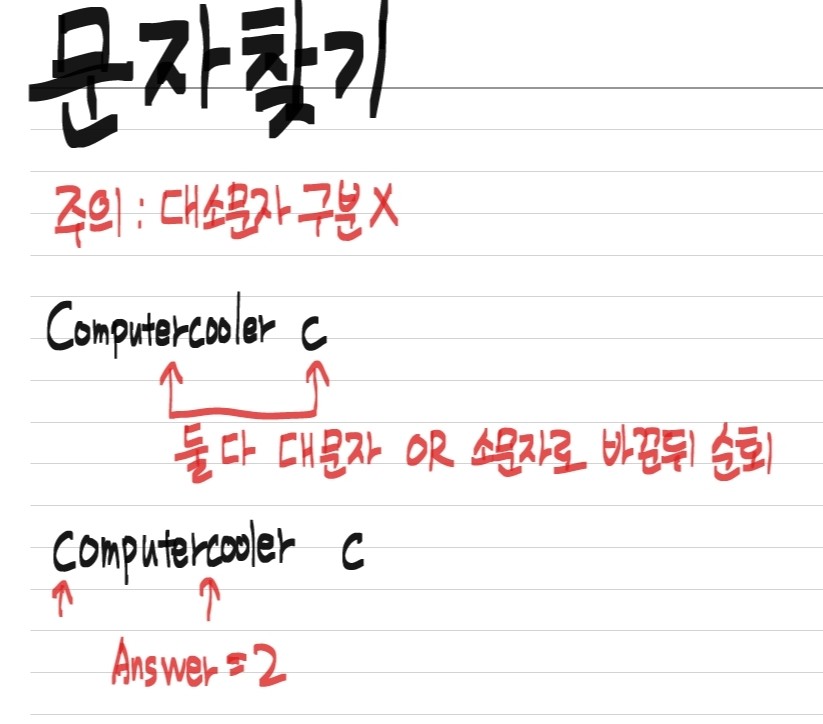 문자찾기
주의 : 대소문자 구분 X
Computercooler c
둘 다 대문자 OR 소문자로 바꾼뒤 순회
computercooler c
Answer = 2